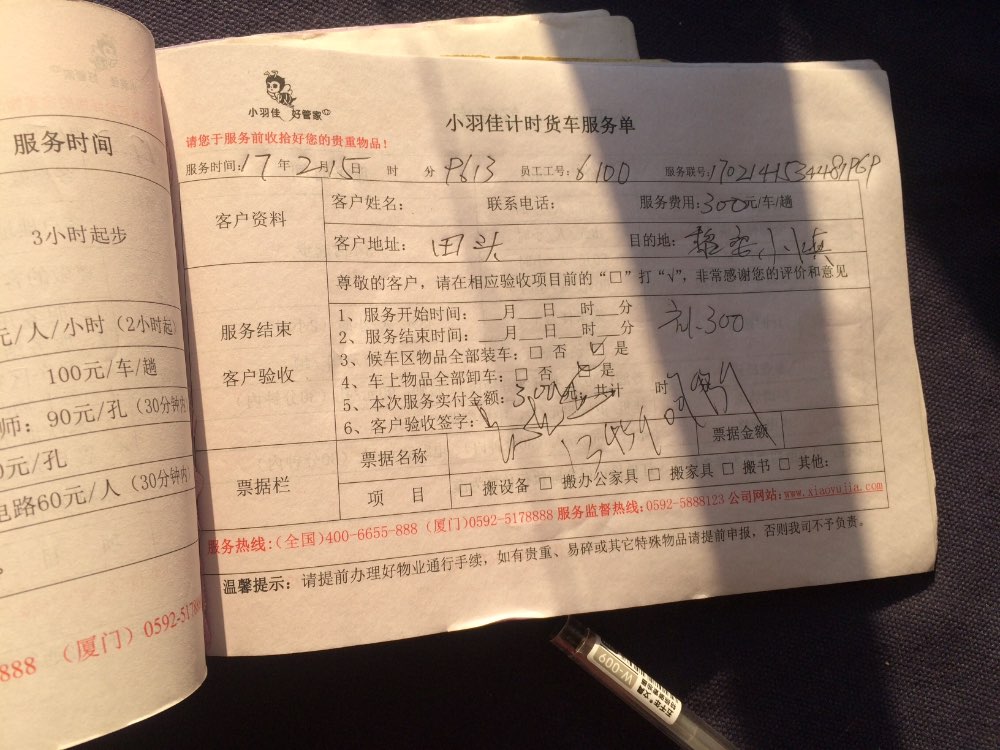 服务时间
3小时起步
元/人/小时（2小时起）
100元/车/趟
师：90元/孔（30分钟内
0元/孔
电路60元/人（30分钟内
888 （厦门）0592-5178
小羽佳 好管家
小羽佳计时货车服务单
请您于服务前收拾好您的贵重物品！
服务时间：17年2月15日 时 分 9613 员工工号：6100 服务联号：
客户资料
客户姓名： 联系电话： 服务费用：300元/车/趟
客户地址：田头 目的地：
尊敬的客户，请在相应验收项目前的“□”打“√”，非常感谢您的评价和意见
服务结束
客户验收
1、服务开始时间：__月__日__时__分
2、服务结束时间：__月__日__时__分
300
3、候车区物品全部装车：□ 否 □ 是
4、车上物品全部卸车：□ 否 □ 是
5、本次服务实付金额：300元，共计 时
6、客户验收签字：
票据栏
票据名称
票据金额
项 目
□ 搬设备 □ 搬办公家具 □ 搬家具 □ 搬书 □ 其他：
服务热线：（全国）400-6655-888（厦门）0592-5178888 服务监督热线：0592-5888123 公司网站：www.xiaoyujia.com
温馨提示：请提前办理好物业通行手续，如有贵重、易碎或其它特殊物品请提前申报，否则我司不予负责。
W-009